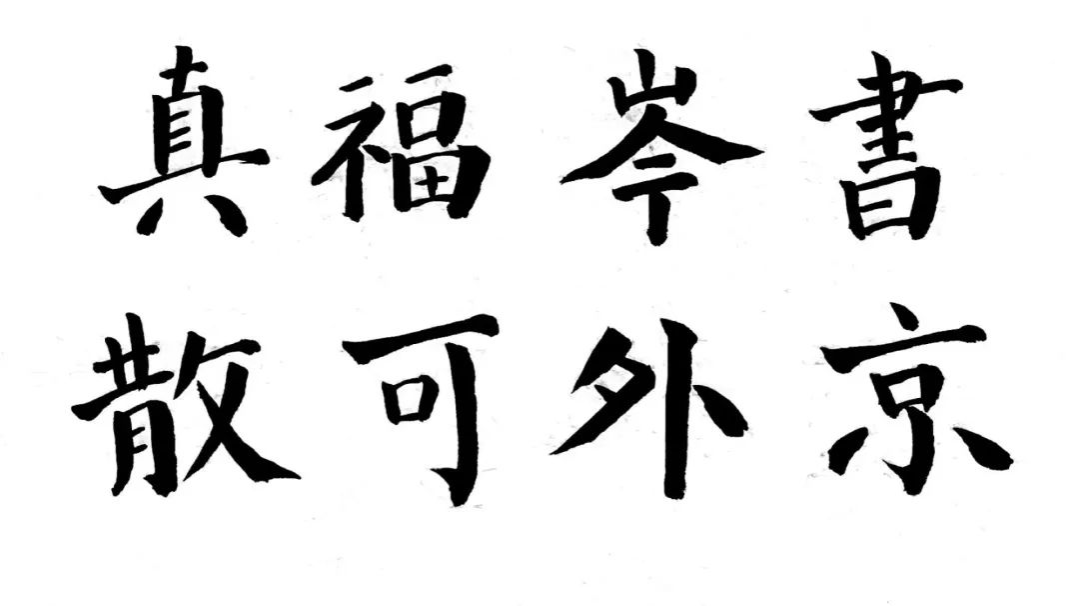 真福岑書
散可外京